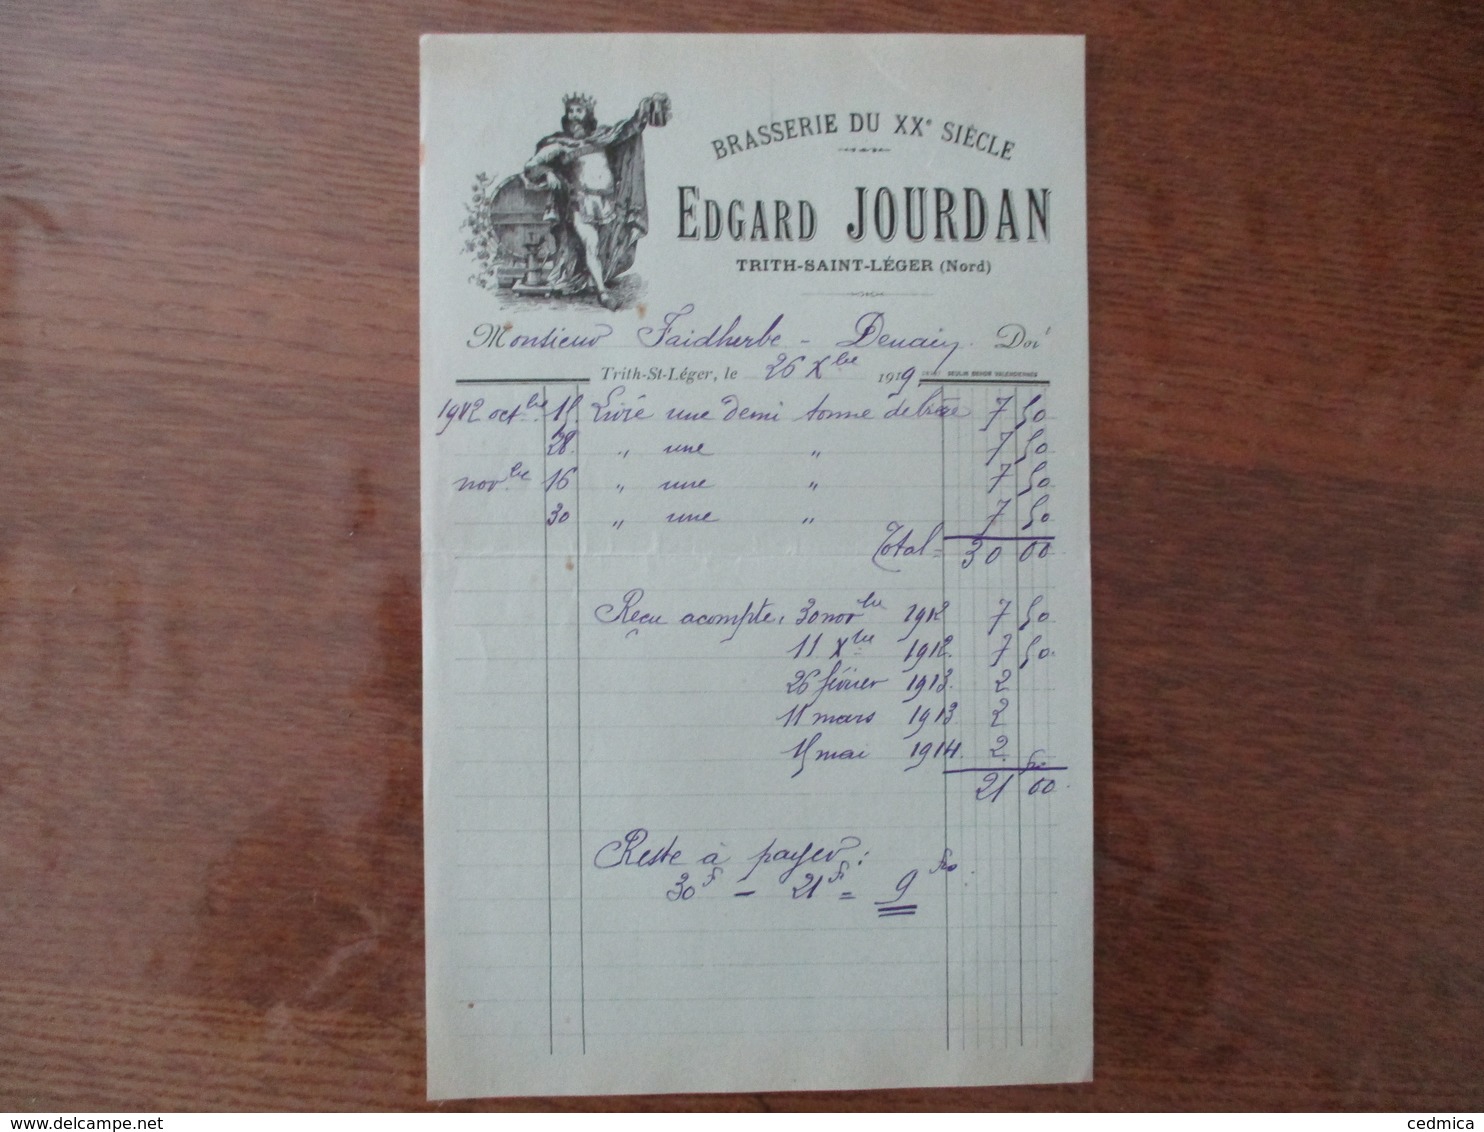 BRASSERIE DU XXe SIÈCLE
EDGARD JOURDAN
TRITH-SAINT-LÉGER (Nord)
Monsieur Faidherbe - Denain. Doit
Trith-St-Léger, le 26 Xbre 1919
1912 octbre 15 Livré une demi tonne de bière 7 50
28 " une " 7 50
novbre 16 " une " 7 50
30 " une " 7 50
Total = 30 00
Reçu acompte, 30 novbre 1912 7 50
11 Xbre 1912. 7 50.
26 février 1913. 2
11 mars 1913 2
15 mai 1914. 2.
frs
21 00.
Reste à payer :
30F - 21F = 9 Frs.
cedmica